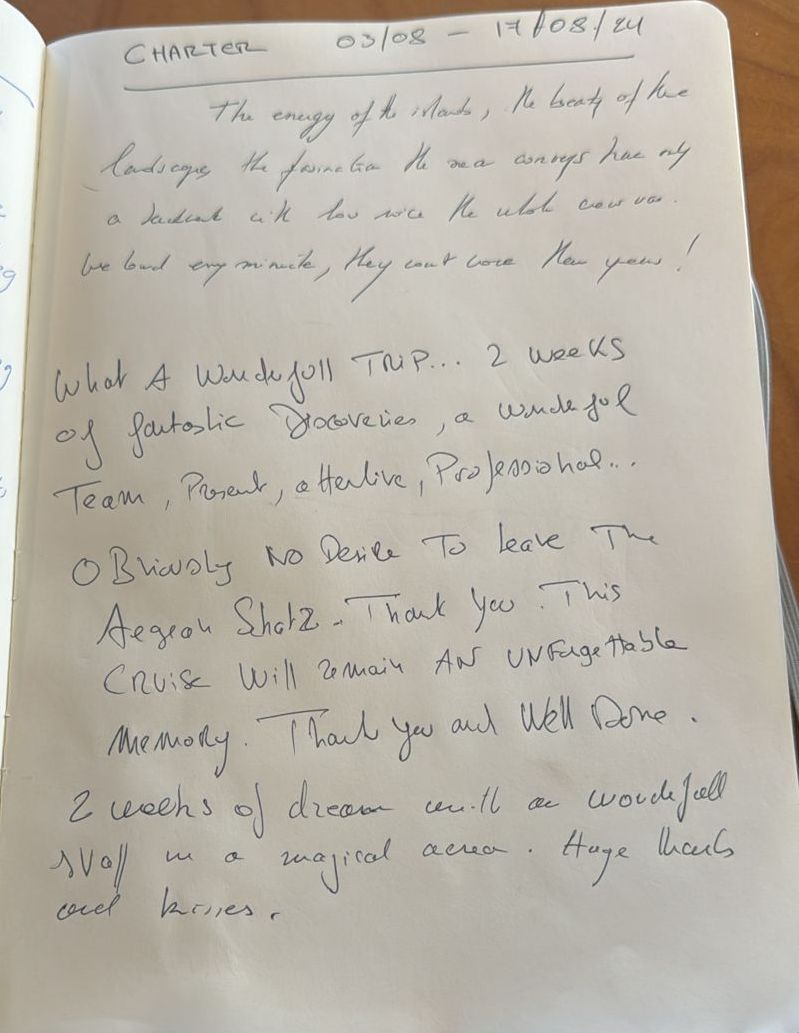 CHARTER 03/08 - 17/08/24
The energy of the islands, the beauty of the
landscapes, the fascination the sea conveys have only
a with how nice the whole crew was.
We loved every minute, they count more than years!
What A Wondefull TRIP... 2 weeks
Of fantastic Discoveries, a wondeful
Team, Present, attentive, Professional...
OBviously NO Desire To leave The
Aegean Shatz. Thank you. This
CRuise Will remain AN UNForgettable
Memory. Thank you and Well Done.
2 weeks of dream with a wondefull
staff in a magical aerea. Huge thanks
and kisses.